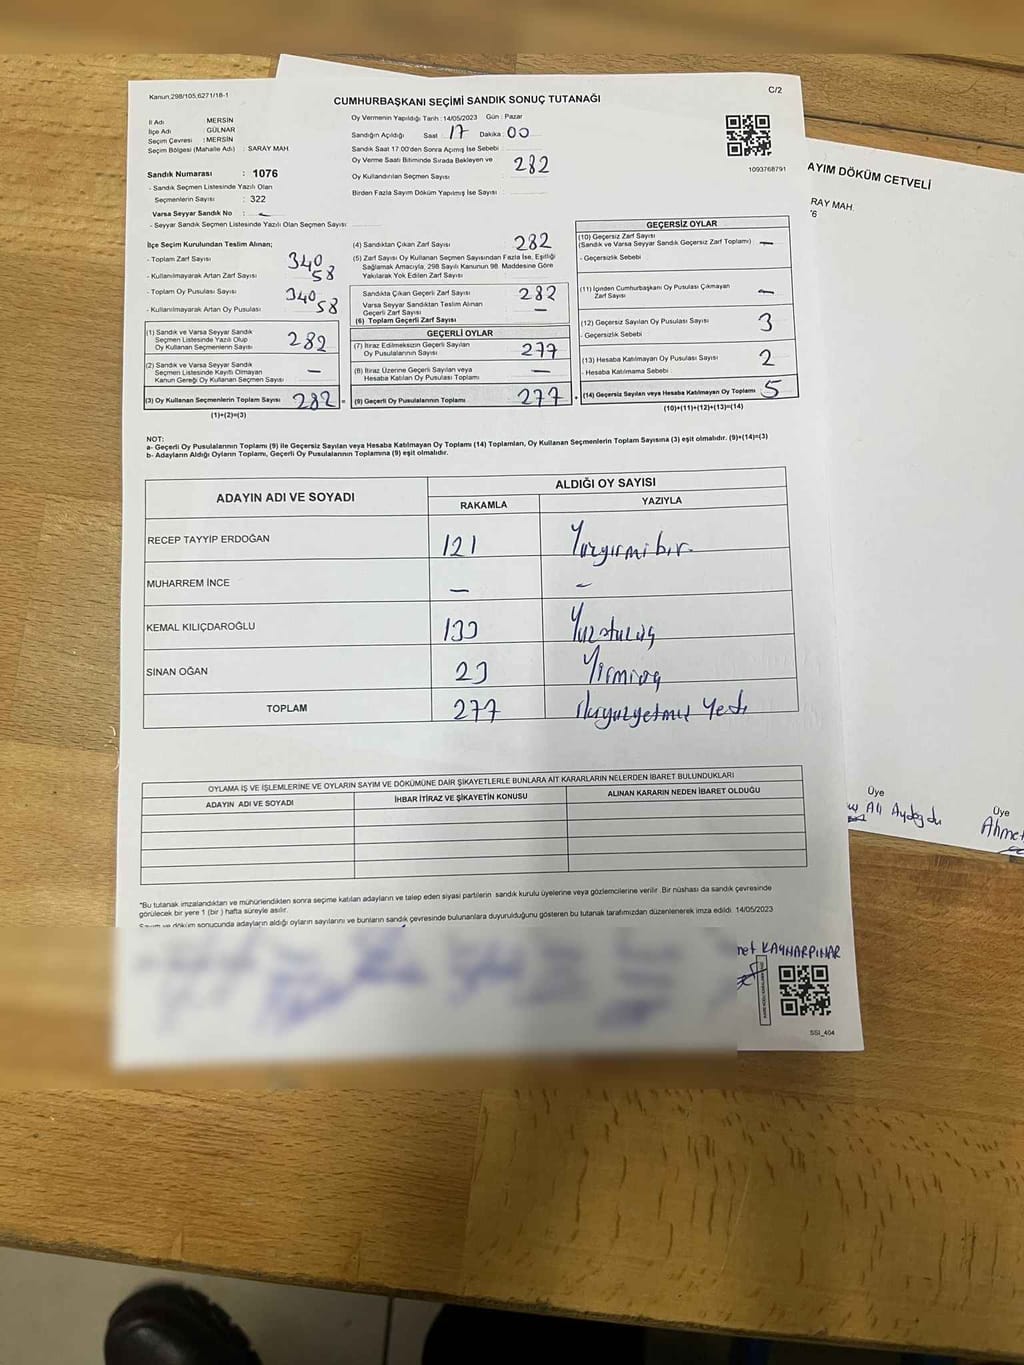 Kanun,298/105,6271/18-1
C/2
CUMHURBAŞKANI SEÇİMİ SANDIK SONUÇ TUTANAĞI
İl Adı MERSİN
İlçe Adı : GÜLNAR
Seçim Çevresi : MERSİN
Seçim Bölgesi (Mahalle Adı) : SARAY MAH.
Sandık Numarası : 1076
- Sandık Seçmen Listesinde Yazılı Olan
Seçmenlerin Sayısı : 322
Varsa Seyyar Sandık No : -
- Seyyar Sandık Seçmen Listesinde Yazılı Olan Seçmen Sayısı
Oy Vermenin Yapıldığı Tarih : 14/05/2023 Gün : Pazar
Sandığın Açıldığı Saat 17 Dakika : 00
Sandık Saat 17.00'den Sonra Açımış İse Sebebi
Oy Verme Saati Bitiminde Sırada Bekleyen ve
Oy Kullandırılan Seçmen Sayısı 282
Birden Fazla Sayım Döküm Yapılmış İse Sayısı
1093768791
İlçe Seçim Kurulundan Teslim Alınan;
- Toplam Zarf Sayısı 340
- Kullanılmayarak Artan Zarf Sayısı 58
- Toplam Oy Pusulası Sayısı 340
- Kullanılmayarak Artan Oy Pusulası 58
(1) Sandık ve Varsa Seyyar Sandık
Seçmen Listesinde Yazılı Olup
Oy Kullanan Seçmenlerin Sayısı 282
(2) Sandık ve Varsa Seyyar Sandık
Seçmen Listesinde Kayıtlı Olmayan
Kanun Gereği Oy Kullanan Seçmen Sayısı -
(3) Oy Kullanan Seçmenlerin Toplam Sayısı 282 =
(1)+(2)=(3)
(4) Sandıktan Çıkan Zarf Sayısı 282
(5) Zarf Sayısı Oy Kullanan Seçmen Sayısından Fazla İse, Eşitliği
Sağlamak Amacıyla, 298 Sayılı Kanunun 98. Maddesine Göre
Yakılarak Yok Edilen Zarf Sayısı
Sandıkta Çıkan Geçerli Zarf Sayısı 282
Varsa Seyyar Sandıktan Teslim Alınan
Geçerli Zarf Sayısı -
(6) Toplam Geçerli Zarf Sayısı
GEÇERLİ OYLAR
(7) İtiraz Edilmeksizin Geçerli Sayılan
Oy Pusulalarının Sayısı 277
(8) İtiraz Üzerine Geçerli Sayılan veya
Hesaba Katılan Oy Pusulası Toplamı -
(9) Geçerli Oy Pusulalarının Toplamı 277 +
GEÇERSİZ OYLAR
(10) Geçersiz Zarf Sayısı
(Sandık ve Varsa Seyyar Sandık Geçersiz Zarf Toplamı) -
- Geçersizlik Sebebi
(11) İçinden Cumhurbaşkanı Oy Pusulası Çıkmayan
Zarf Sayısı -
(12) Geçersiz Sayılan Oy Pusulası Sayısı 3
- Geçersizlik Sebebi
(13) Hesaba Katılmayan Oy Pusulası Sayısı 2
- Hesaba Katılmama Sebebi
(14) Geçersiz Sayılan veya Hesaba Katılmayan Oy Toplamı 5
(10)+(11)+(12)+(13)=(14)
NOT:
a- Geçerli Oy Pusulalarının Toplamı (9) ile Geçersiz Sayılan veya Hesaba Katılmayan Oy Toplamı (14) Toplamları, Oy Kullanan Seçmenlerin Toplam Sayısına (3) eşit olmalıdır. (9)+(14)=(3)
b- Adayların Aldığı Oyların Toplamı, Geçerli Oy Pusulalarının Toplamına (9) eşit olmalıdır.
ADAYIN ADI VE SOYADI
ALDIĞI OY SAYISI
RAKAMLA YAZIYLA
RECEP TAYYİP ERDOĞAN 121 Yüzyirmi bir
MUHARREM İNCE - -
KEMAL KILIÇDAROĞLU 133 Yüzotuzüç
SİNAN OĞAN 23 Yirmiüç
TOPLAM 277 ikiyüzyetmiş Yedi
OYLAMA İŞ VE İŞLEMLERİNE VE OYLARIN SAYIM VE DÖKÜMÜNE DAİR ŞİKAYETLERLE BUNLARA AİT KARARLARIN NELERDEN İBARET BULUNDUKLARI
ADAYIN ADI VE SOYADI İHBAR İTİRAZ VE ŞİKAYETİN KONUSU ALINAN KARARIN NEDEN İBARET OLDUĞU
"Bu tutanak imzalandıktan ve mühürlendikten sonra seçime katılan adayların ve talep eden siyasi partilerin sandık kurulu üyelerine veya gözlemcilerine verilir. Bir nüshası da sandık çevresinde
görülecek bir yere 1 (bir) hafta süreyle asılır.
Sayım ve döküm sonucunda adayların aldığı oyların sayılarını ve bunların sandık çevresinde bulunanlara duyurulduğunu gösteren bu tutanak tarafımızdan düzenlenerek imza edildi. 14/05/2023
net KAYNARPINAR
SSI_404
AYIM DÖKÜM CETVELİ
RAY MAH.
'6
Üye
Ali Aydoğdu
Üye
Ahmet